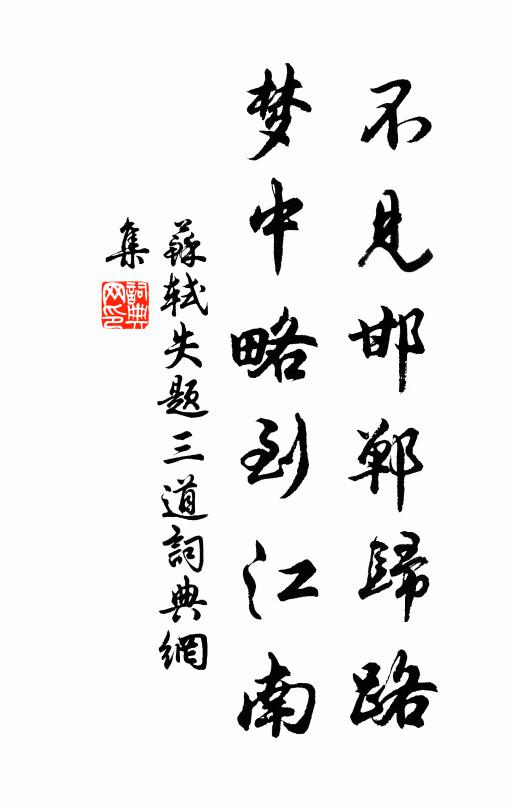 不見邯鄲歸路
梦中略到江南
蘇軾失题三道詞典網
集
詞典
网印